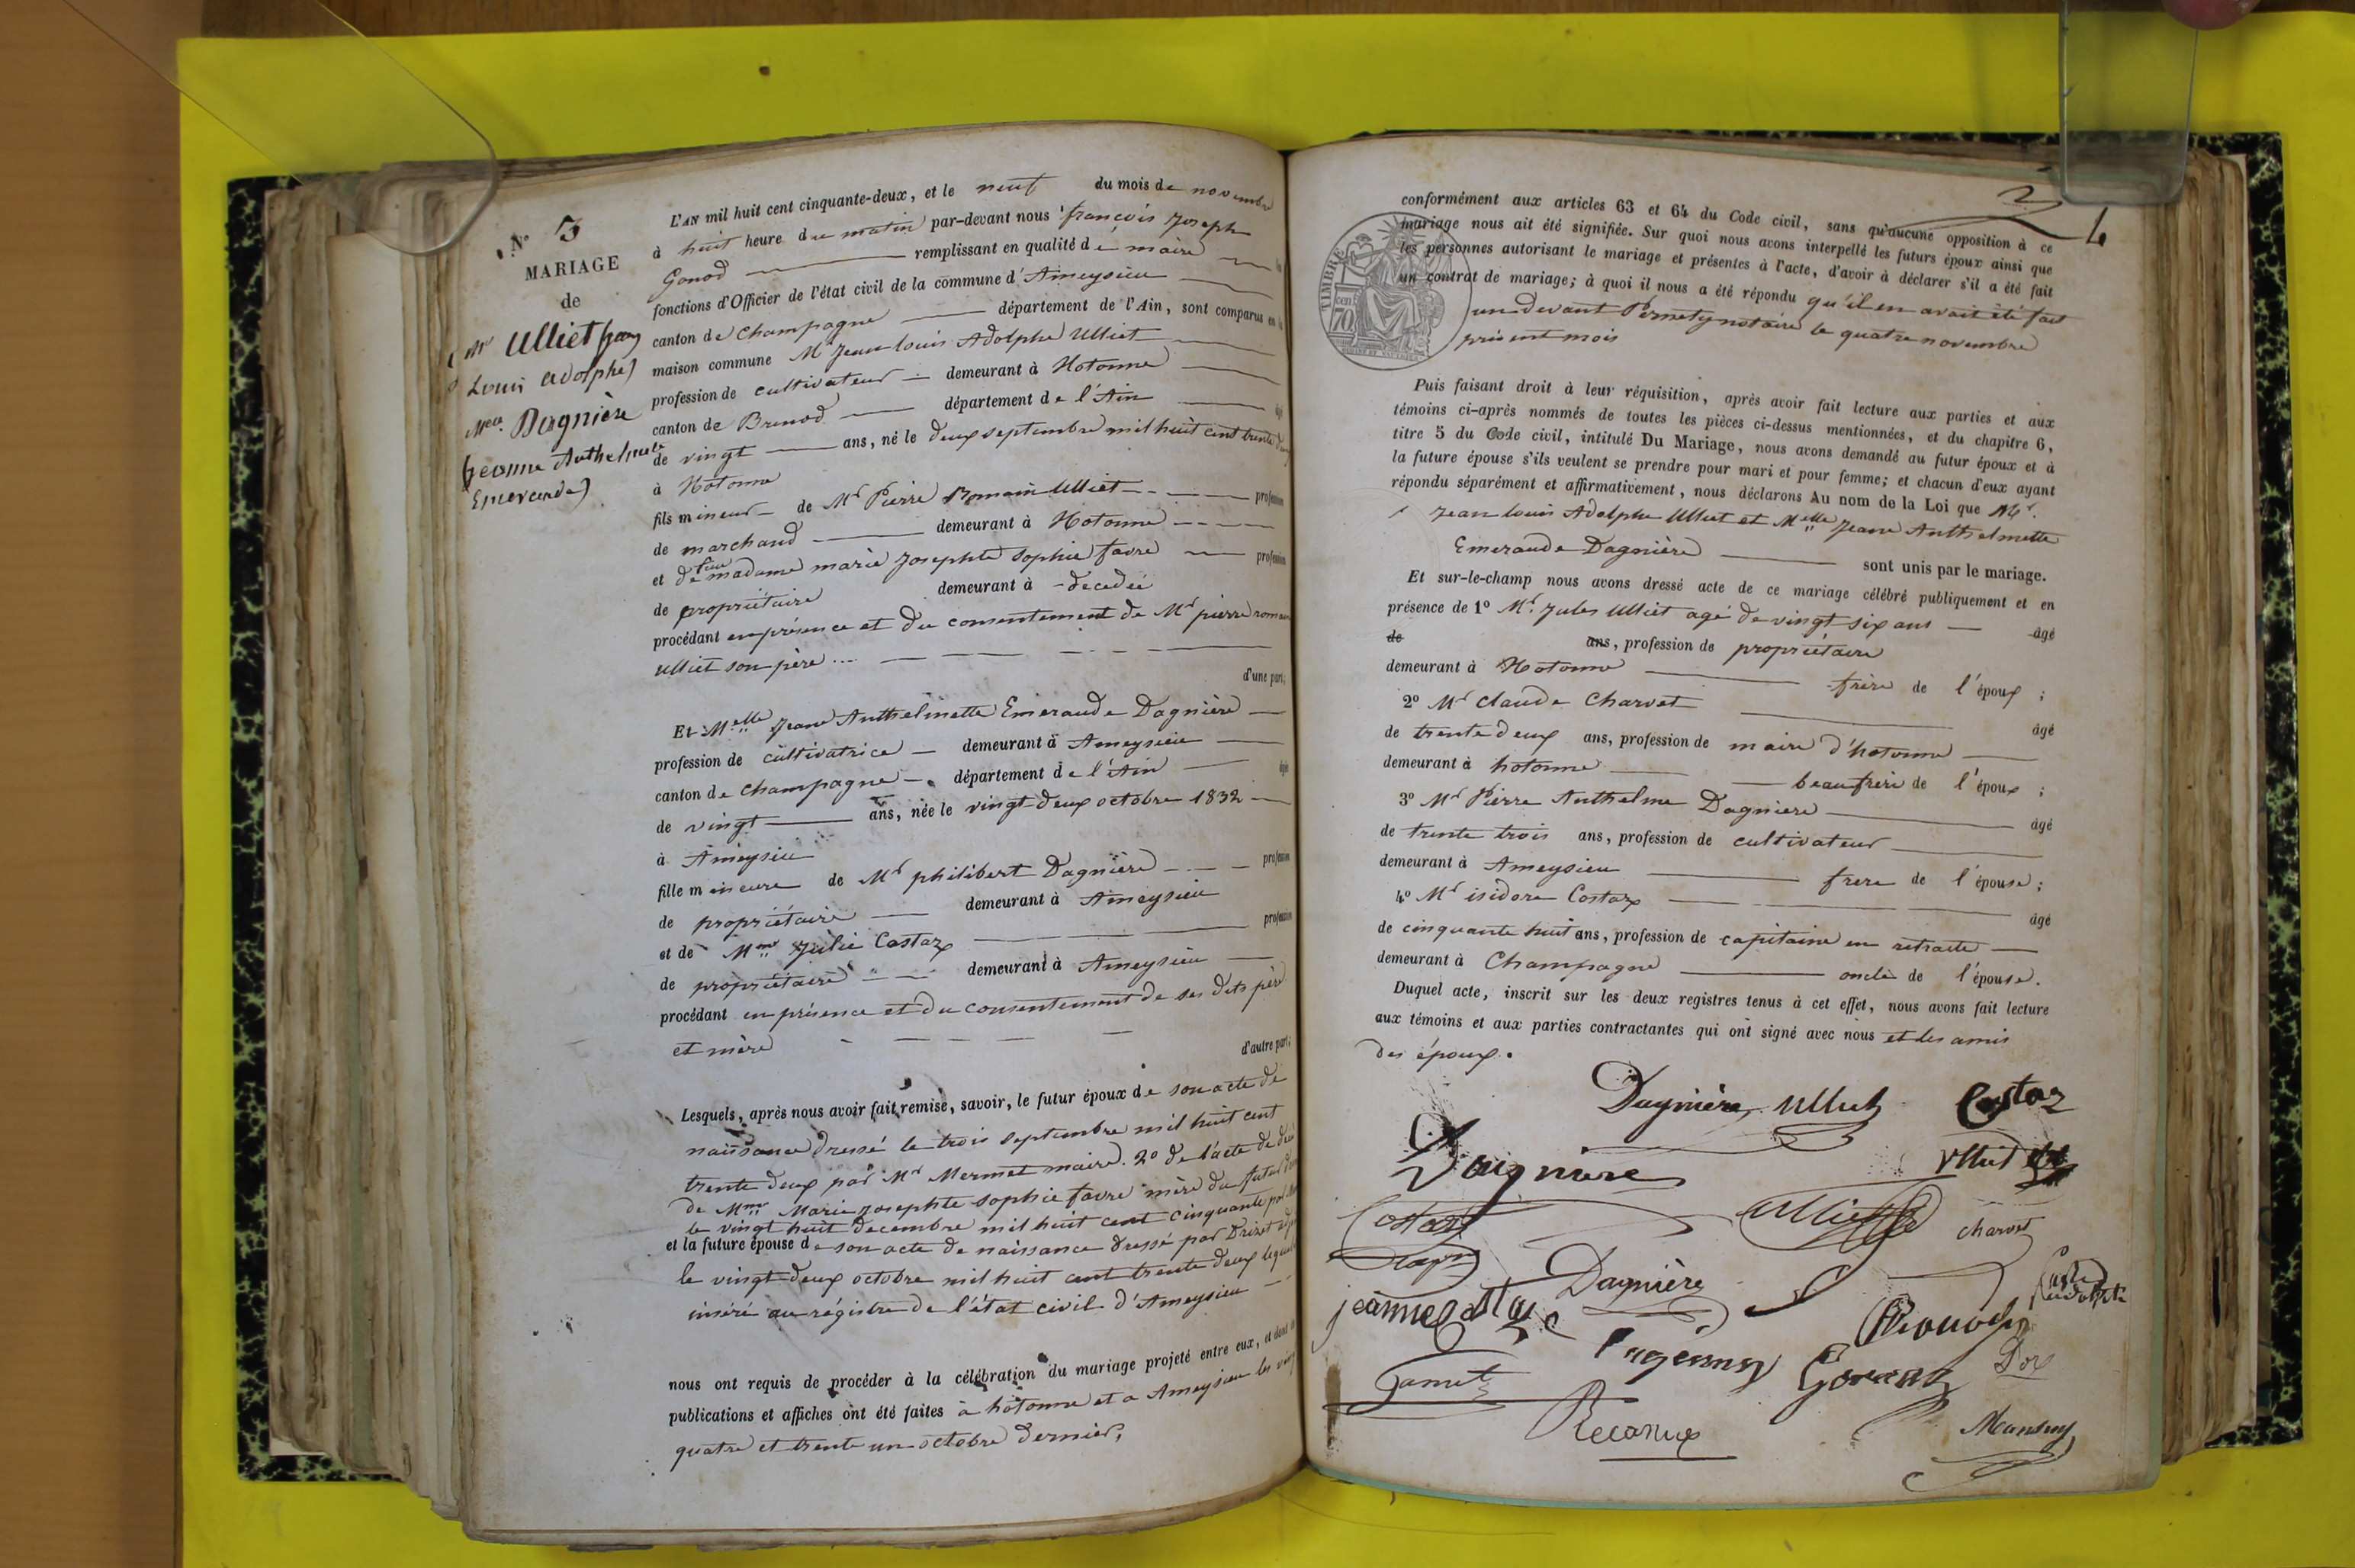 N° 3
MARIAGE
de
Mr Ulliet Jean
Louis Adolphe)
Melle Dagnière
(Jeanne Anthelmette
Emeraude)
L'AN mil huit cent cinquante-deux, et le neuf du mois de novembre
à huit heure du matin par-devant nous françois Joseph
Gonod remplissant en qualité de maire
fonctions d'Officier de l'état civil de la commune d'Ameysieu
canton de Champagne département de l'Ain, sont comparus en la
maison commune Mr Jean louis Adolphe Ulliet
profession de cultivateur demeurant à Hotonne
canton de Brenod département de l'Ain
de vingt ans, né le deux septembre mil huit cent trente deux
à Hotonne
fils mineur de Mr Pierre Romain Ulliet profession
de marchand demeurant à Hotonne
et de feue madame marie Josephte Sophie favre profession
de propriétaire demeurant à decedée
procédant en présence et du consentement de Mr pierre romain
Ulliet son père
d'une part;
Et Melle Jeane Anthelmette Emeraude Dagnière
profession de cultivatrice demeurant à Ameysieu
canton de Champagne département de l'Ain âgée
de vingt ans, née le vingt deux octobre 1832
à Ameysieu
fille mineure de Mr philibert Dagnière profession
de propriétaire demeurant à Ameysieu
et de Mme Julie Costaz profession
de propriétaire demeurant à Ameysieu
procédant en présence et du consentement de ses dits père
et mère
d'autre part;
Lesquels, après nous avoir fait remise, savoir, le futur époux de son acte de
naissance dressé le trois septembre mil huit cent
trente deux par Mr Mermet maire. 2° de l'acte de décès
de Mme Marie Josephte Sophie favre mère du futur
le vingt huit decembre mil huit cent cinquante
et la future épouse de son acte de naissance dressé par Drizet
le vingt deux octobre mil huit cent trente deux
inséré au régistre de l'état civil d'Ameysieu
nous ont requis de procéder à la célébration du mariage projeté entre eux, et dont les
publications et affiches ont été faites à hotonne et a Ameysieu les vingt
quatre et trente un octobre dernier,
2
4
TIMBRE
70 cen
conformément aux articles 63 et 64 du Code civil, sans qu'aucune opposition à ce
mariage nous ait été signifiée. Sur quoi nous avons interpellé les futurs époux ainsi que
les personnes autorisant le mariage et présentes à l'acte, d'avoir à déclarer s'il a été fait
un contrat de mariage; à quoi il nous a été répondu qu'il en avait été fait
un devant Pernety notaire le quatre novembre
présent mois
Puis faisant droit à leur réquisition, après avoir fait lecture aux parties et aux
témoins ci-après nommés de toutes les pièces ci-dessus mentionnées, et du chapitre 6,
titre 5 du Code civil, intitulé Du Mariage, nous avons demandé au futur époux et à
la future épouse s'ils veulent se prendre pour mari et pour femme; et chacun d'eux ayant
répondu séparément et affirmativement, nous déclarons Au nom de la Loi que Mr.
Jean louis Adolphe Ulliet et Melle Jeane Anthelmette
Emeraude Dagnière sont unis par le mariage.
Et sur-le-champ nous avons dressé acte de ce mariage célébré publiquement et en
présence de 1° Mr. Jules Ulliet agé de vingt six ans âgé
de ans, profession de propriétaire
demeurant à Hotonne frère de l'époux;
2° Mr Claude Charvet âgé
de trente deux ans, profession de maire d'hotonne
demeurant à hotonne beaufrère de l'époux;
3° Mr Pierre Anthelme Dagniere âgé
de trente trois ans, profession de cultivateur
demeurant à Ameysieu frere de l'épouse;
4° Mr isidore Costaz âgé
de cinquante huit ans, profession de capitaine en retraite
demeurant à Champagne oncle de l'épouse.
Duquel acte, inscrit sur les deux registres tenus à cet effet, nous avons fait lecture
aux témoins et aux parties contractantes qui ont signé avec nous et les amis
des époux.
Dagnière Ulliet Costaz
Dagniere Ulliet
Costaz Ulliet Charvet
Dagnière
jeannecostaz
Gonod
Mansuy